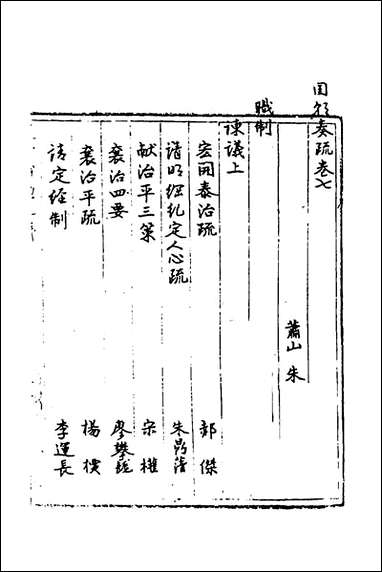 国朝奏疏卷七
蕭山 朱
職制
諫議上
宏開泰治疏 郝傑
請明綱紀定人心疏 朱
献治平三策 宋權
襄治四要 廖攀龍
襄治平疏 楊
請定經制 李運長